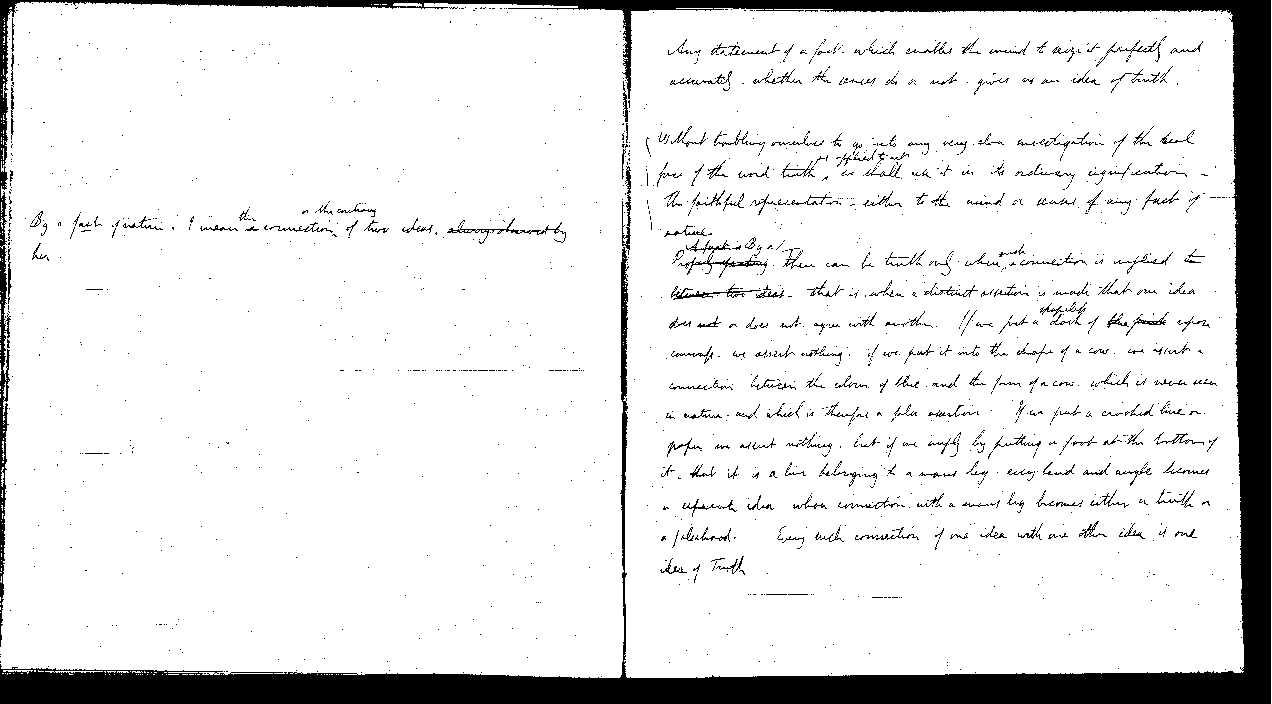 or the contrary
the
By a fact of nature. I mean a connection, of two ideas. always observed by
her
Any statement of a fact. which enables the mind to seize it perfectly and
accurately. whether the senses do or not. gives us an idea of truth.
Without troubling ourselves to go into any very close investigation of the real
as applied to art
force of the word truth, we shall use it in its ordinary signification -
the faithful representation - either to the mind or senses of any fact of
nature.
A fact is By a
Properly speaking. There can be truth only when a connection is implied to
such
between two ideas - that is. when a distinct assertion is made that one idea
does not or does not agree with another. If we put a dash of blue upon
canvass. we assert nothing. if we put it into the shape of a cow. we assert a
connection between the colour of blue. and the form of a cow. which is never seen
in nature. and which is therefore a false assertion. If we put a crooked line on
paper we assert nothing. but if we imply by putting a foot at the bottom of
it. that it is a line belonging to a mans leg. every bend and angle becomes
a separate idea whose connection with a mans leg becomes either a truth or
a falsehood. Every such connection of one idea with one other idea is one
idea of Truth